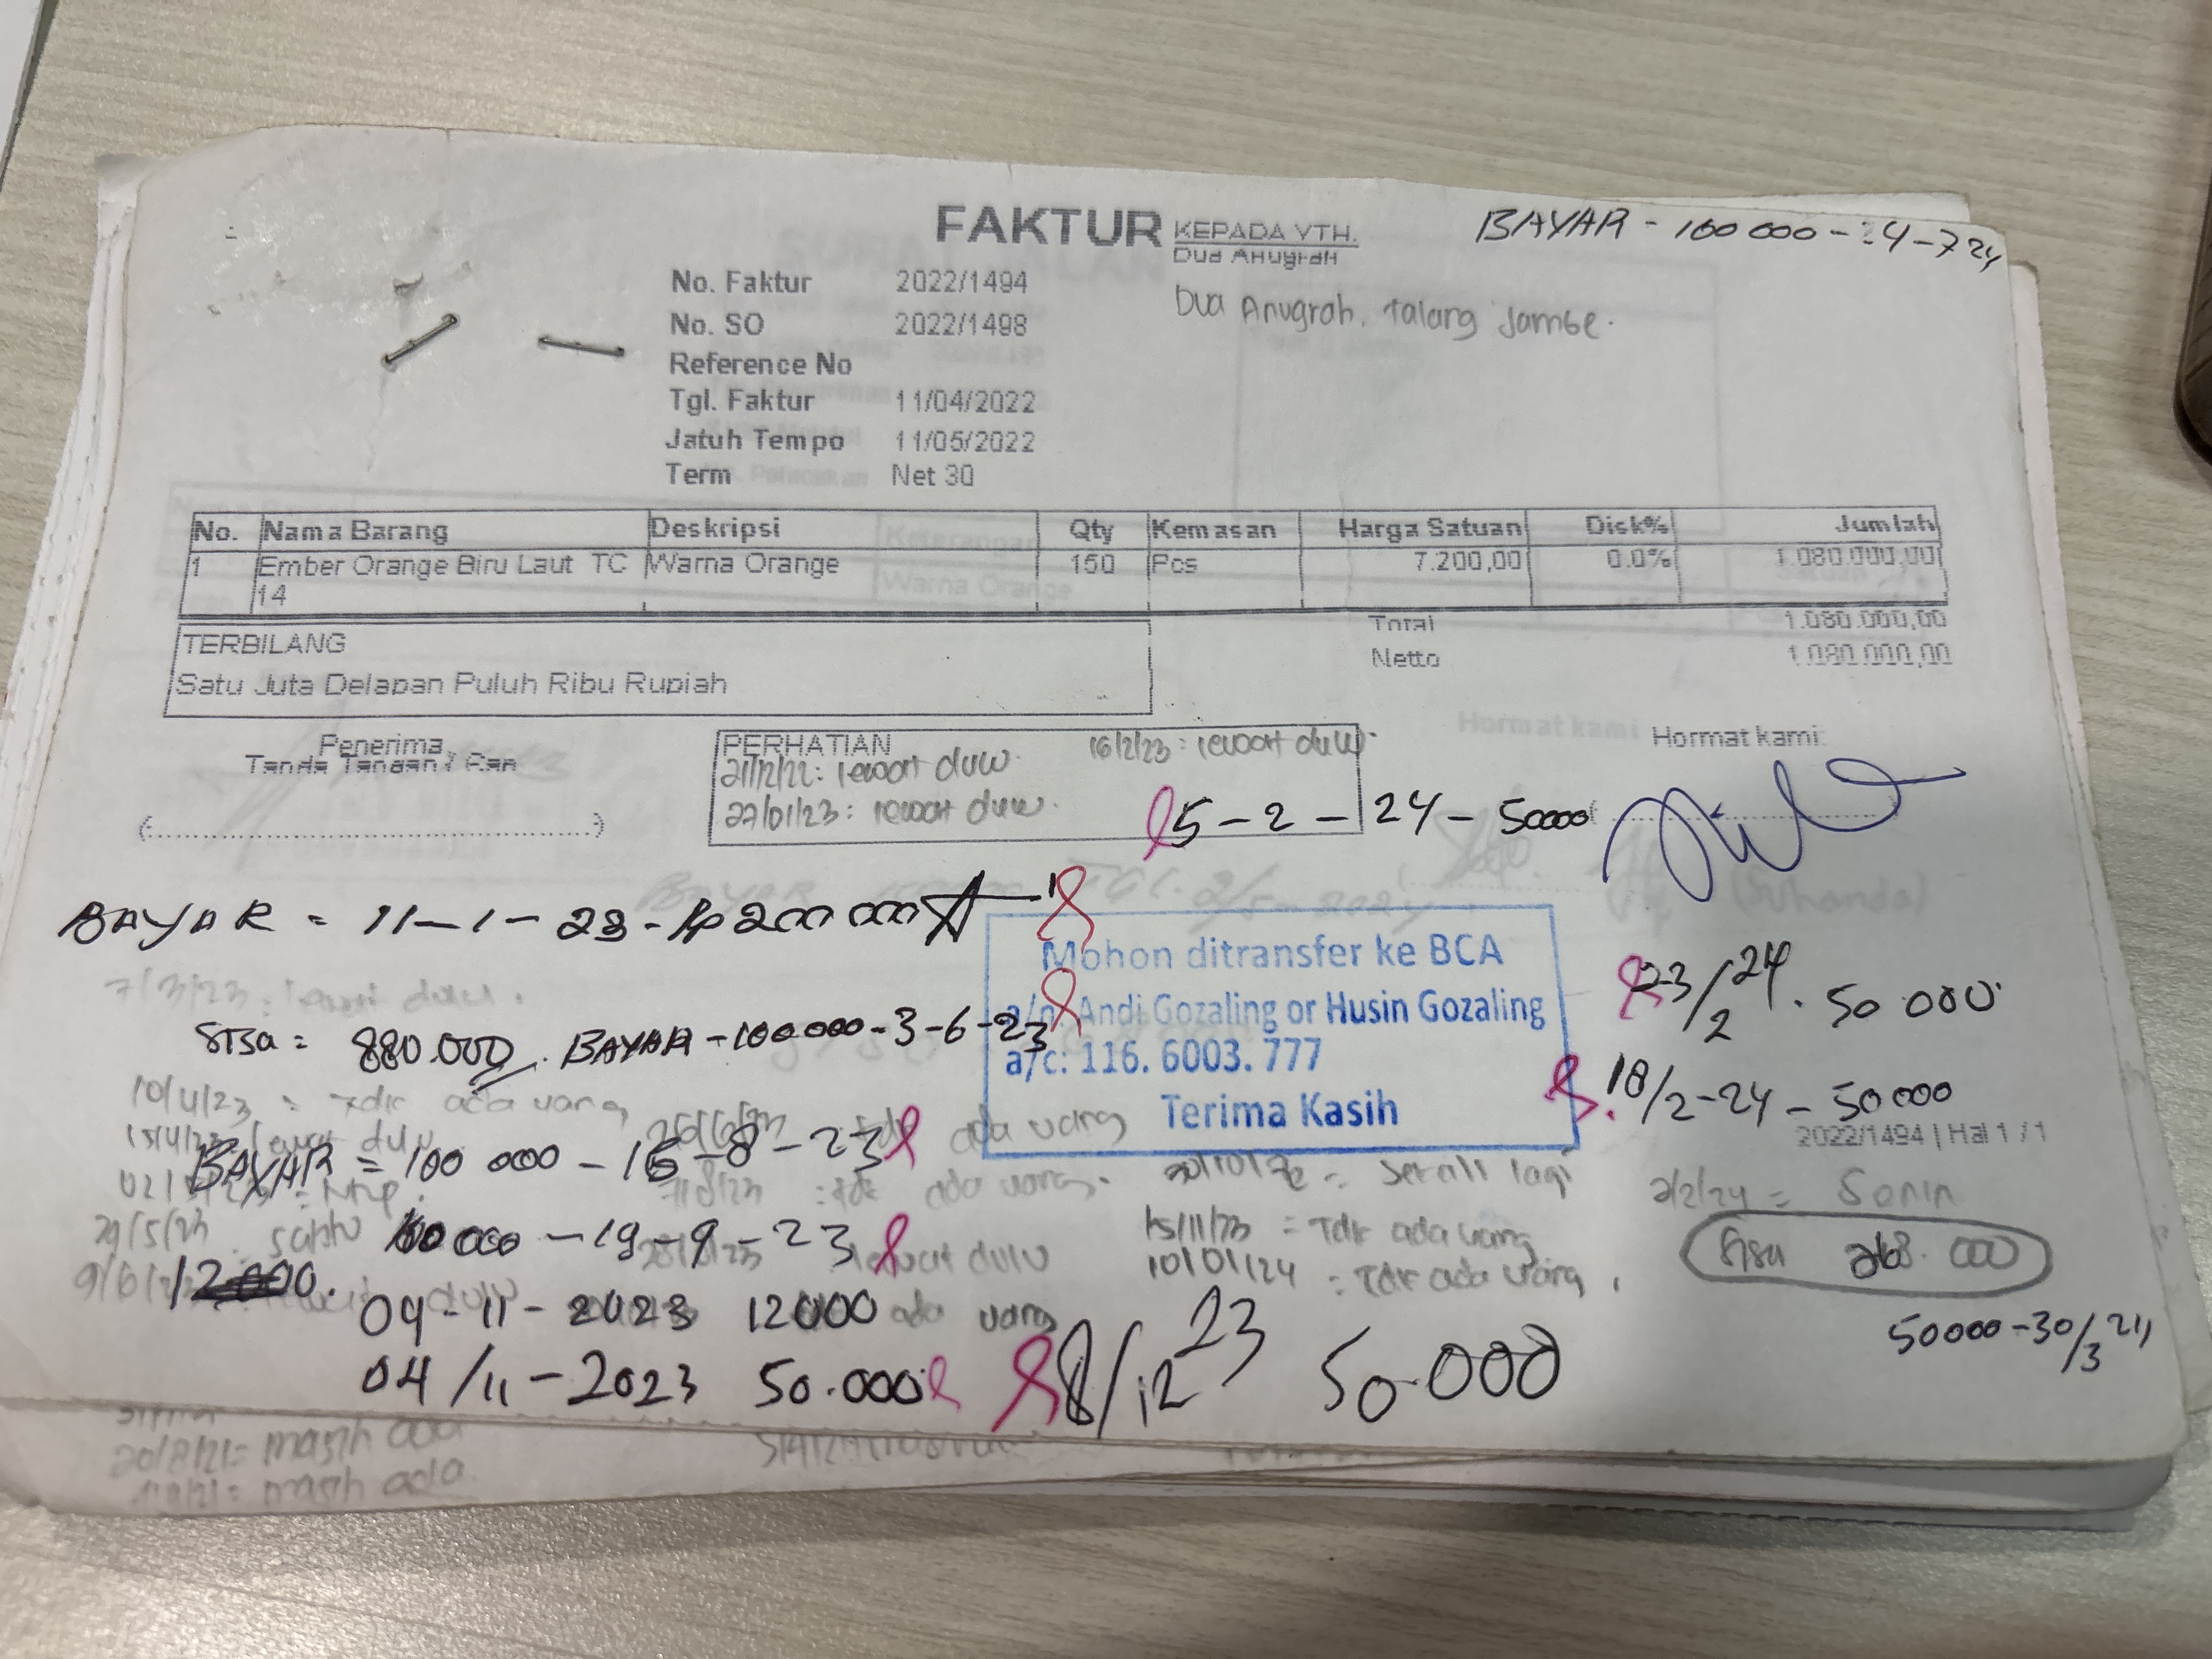 FAKTUR
KEPADA YTH.
Dua Anugrah
BAYAR - 100 000 - 24 - 7 24
Dua Anugrah. Talang Jambe.
No. Faktur 2022/1494
No. SO 2022/1498
Reference No
Tgl. Faktur 11/04/2022
Jatuh Tempo 11/05/2022
Term Net 30
No. Nama Barang Deskripsi Qty Kemasan Harga Satuan Disk% Jumlah
1 Ember Orange Biru Laut TC 14 Warna Orange 150 Pcs 7.200,00 0.0% 1.080.000,00
Total 1.080.000,00
Netto 1.080.000,00
TERBILANG
Satu Juta Delapan Puluh Ribu Rupiah
Penerima,
PERHATIAN
Hormat kami
21/12/22: lewat dulu.
16/2/23: lewat dulu.
27/01/23: lewat dulu.
5 - 2 - 24 - 50000
BAYAR = 11 - 1 - 23 - Rp 200 000
7/3/23: dulu.
Sisa = 880.000. BAYAR - 100 000 - 3 - 6 - 23
Mohon ditransfer ke BCA
a/n. Andi Gozaling or Husin Gozaling
a/c: 116. 6003. 777
Terima Kasih
23/2 24. 50 000
18/2-24 - 50000
2022/1494 | Hal 1 / 1
10/4/23 = Tdk ada uang
ada uang
BAYAR = 100 000 - 16 - 8 - 23
ada uang.
= sekali lagi
2/2/24 = Senin
29/5/23 sabtu
- 19 - 9 - 23
lewat dulu
15/11/23 = Tdk ada uang
10/01/24 = Tdk ada uang.
Sisa 268.000
04 - 11 - 2023 12000
ada uang
04 / 11 - 2023 50.000
8/12 23 50.000
50000 - 30/3 24
20/8/21 = masih ada
masih ada